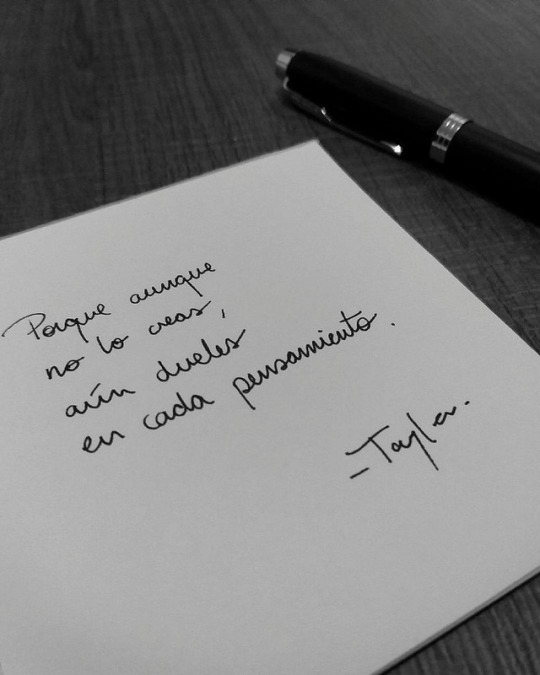 Porque aunque
no lo creas,
aún dueles
en cada pensamiento.
-Tayler.